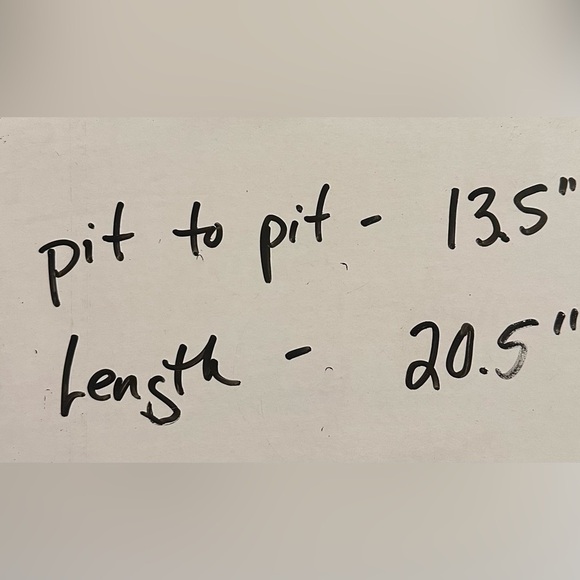 pit to pit - 13.5"
Length - 20.5"